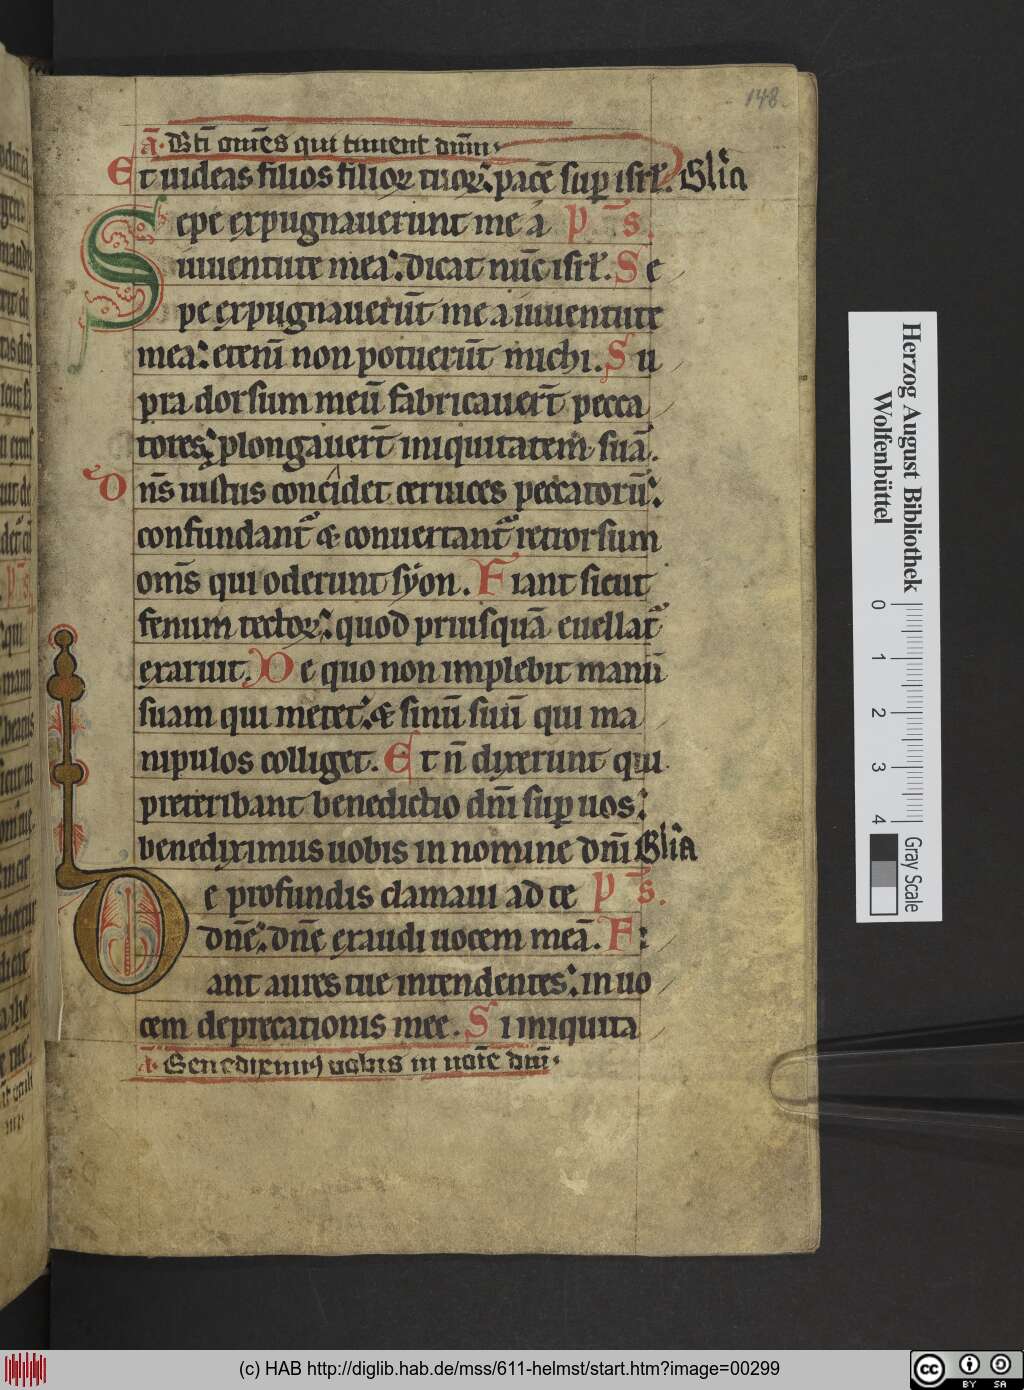 148
a. Bti̅ om̅es qui timent dn̅m.
Et uideas filios filioꝝ tuoꝝ: pace̅ sup isrl̅. Gl̅ia
Sepe expugnauerunt me a p̅s.
iuuentute mea: dicat nu̅c isrl̅. Se
pe expugnaueru̅t me a iuuentute
mea: eteni̅ non potueru̅t michi. Su
pra dorsum meu̅ fabricauer̅t pecca
tores: plongauer̅t iniquitatem sua̅.
Dn̅s iustus concidet ceruices peccatoru̅:
confundant᷑ & conuertant᷑ retrorsum
om̅s qui oderunt syon. Fiant sicut
fenum tectoꝝ: quod priusqua̅ euellat᷑
exaruit. De quo non implebit manu̅
suam qui metet: & sinu̅ suu̅ qui ma
nipulos colliget. Et n̅ dixerunt qui
preteribant benedictio dn̅i sup uos:
benediximus uobis in nomine dn̅i Gl̅ia
De profundis clamaui ad te p̅s.
dn̅e: dn̅e exaudi uocem mea̅. Fi
ant aures tue intendentes: in uo
cem deprecationis mee. Si iniquita
a. Benediximus uobis in noi̅e dn̅i.
Herzog August Bibliothek
Wolfenbüttel
0 1 2 3 4
Gray Scale
(c) HAB http://diglib.hab.de/mss/611-helmst/start.htm?image=00299
cc BY SA